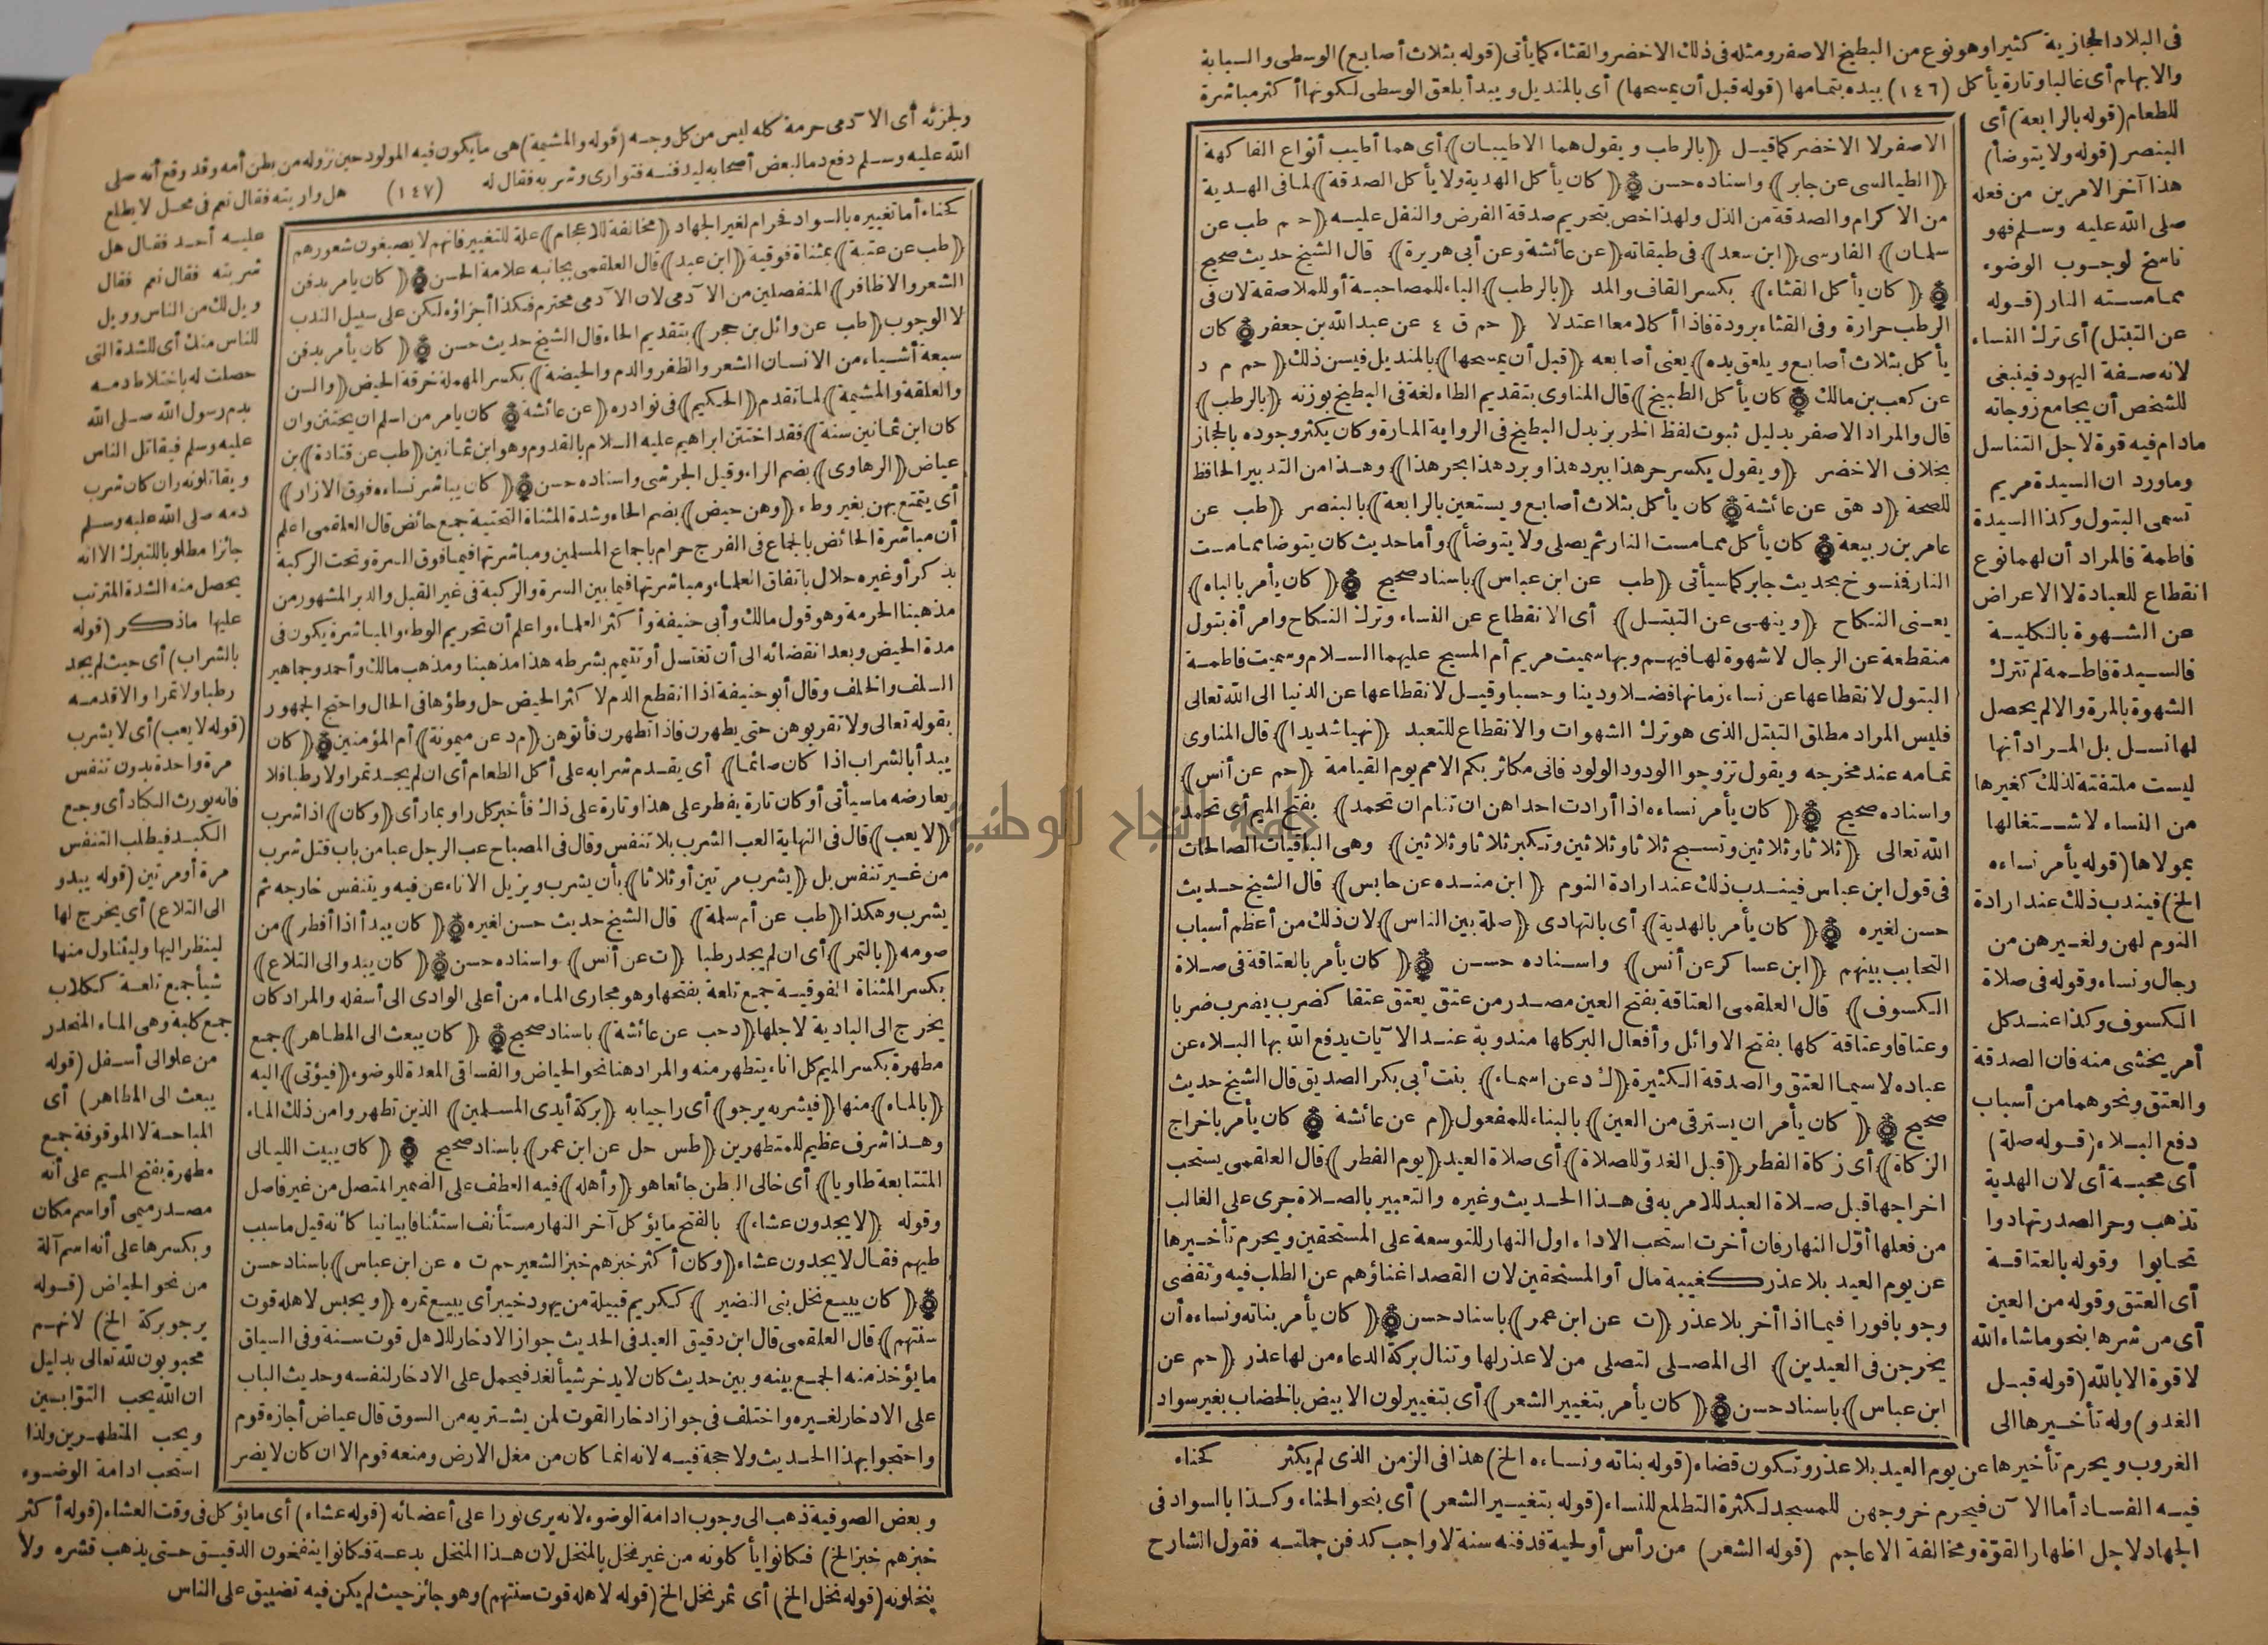 فى البلاد الحجازية كثيرا وهو نوع من البطيخ الاصفر ومثله فى ذلك الاخضر والقثاء كما يأتى (قوله بثلاث أصابع) الوسطى والسبابة
والابهام أى غالبا وتارة يأكل (١٤٦) بيده بتمامها (قوله قبل أن يمسحها) أى بالمنديل ويبدأ بلعق الوسطى لكونها أكثر مباشرة
للطعام (قوله بالرابعة) أى
البنصر (قوله ولا يتوضأ)
هذا آخر الامرين من فعله
صلى الله عليه وسلم فهو
ناسخ لوجوب الوضوء
مما مسته النار (قوله
عن التبتل) أى ترك النساء
لانه صفة اليهود فينبغى
للشخص أن يجامع زوجاته
مادام فيه قوة لاجل التناسل
وما ورد ان السيدة مريم
تسمى البتول وكذا السيدة
فاطمة فالمراد أن لهما نوع
انقطاع للعبادة لا الاعراض
عن الشهوة بالكلية
فالسيدة فاطمة لم تترك
الشهوة بالمرة والا لم يحصل
لها نسل بل المراد أنها
ليست ملتفتة لذلك كغيرها
من النساء لاشتغالها
بمولاها (قوله يأمر نساءه
الخ) فيندب ذلك عند ارادة
النوم لهن ولغيرهن من
رجال ونساء وقوله فى صلاة
الكسوف وكذا عند كل
أمر يخشى منه فان الصدقة
والعتق ونحوهما من أسباب
دفع البلاء (قوله صلة)
أى محبة أى لان الهدية
تذهب وحر الصدر تهادوا
تحابوا وقوله بالعتاقة
أى العتق وقوله من العين
أى من شرها بنحو ما شاء الله
لا قوة الا بالله (قوله قبل
الغدو) وله تأخيرها الى
الاصفر لا الاخضر كما قيل (بالرطب ويقول هما الاطيبان) أى هما أطيب أنواع الفاكهة
(الطيالسى عن جابر) واسناده حسن (كان يأكل الهدية ولا يأكل الصدقة) لما فى الهدية
من الاكرام والصدقة من الذل ولهذا خص بتحريم صدقة الفرض والنفل عليه (حم طب عن
سلمان) الفارسى (ابن سعد) فى طبقاته (عن عائشة وعن أبى هريرة) قال الشيخ حديث صحيح
(كان يأكل القثاء) بكسر القاف والمد (بالرطب) الباء للمصاحبة أو للملاصقة لان فى
الرطب حرارة وفى القثاء برودة فاذا أكلا معا اعتدلا (حم ق ٤ عن عبد الله بن جعفر) كان
يأكل بثلاث أصابع ويلعق يده) يعنى أصابعه (قبل أن يمسحها) بالمنديل فيسن ذلك (حم م د
عن كعب بن مالك كان يأكل الطبيخ) قال المناوى بتقديم الطاء لغة فى البطيخ بوزنه (بالرطب)
قال والمراد الاصفر بدليل ثبوت لفظ الخربز بدل البطيخ فى الرواية المارة وكان يكثر وجوده بالحجاز
بخلاف الاخضر (ويقول يكسر حر هذا ببرد هذا وبرد هذا بحر هذا) وهذا من التدبير الحافظ
للصحة (د هق عن عائشة كان يأكل بثلاث أصابع ويستعين بالرابعة) بالبنصر (طب عن
عامر بن ربيعة كان يأكل مما مست النار ثم يصلى ولا يتوضأ) وأما حديث كان يتوضأ مما مست
النار فنسوخ بحديث جابر كما سيأتى (طب عن ابن عباس) باسناد صحيح (كان يأمر بالباه)
يعنى النكاح (وينهى عن التبتل) أى الانقطاع عن النساء وترك النكاح وامرأة بتول
منقطعة عن الرجال لا شهوة لها فيهم وبها سميت مريم أم المسيح عليهما السلام وسميت فاطمة
البتول لانقطاعها عن نساء زمانها فضلا ودينا وحسبا وقيل لانقطاعها عن الدنيا الى الله تعالى
فليس المراد مطلق التبتل الذى هو ترك الشهوات والانقطاع للتعبد (نهيا شديدا) قال المناوى
تمامه عند مخرجه ويقول تزوجوا الودود الولود فانى مكاثر بكم الامم يوم القيامة (حم عن أنس)
واسناده صحيح (كان يأمر نساءه اذا أرادت احداهن ان تنام ان تحمد) بفتح الميم أى تحمد
الله تعالى (ثلاثا وثلاثين وتسبح ثلاثا وثلاثين وتكبر ثلاثا وثلاثين) وهى الباقيات الصالحات
فى قول ابن عباس فيندب ذلك عند ارادة النوم (ابن منده عن حابس) قال الشيخ حديث
حسن لغيره (كان يأمر بالهدية) أى بالتهادى (صلة بين الناس) لان ذلك من أعظم أسباب
التحابب بينهم (ابن عساكر عن أنس) واسناده حسن (كان يأمر بالعتاقة فى صلاة
الكسوف) قال العلقمى العتاقة بفتح العين مصدر من عتق يعتق عتقا كضرب يضرب ضربا
وعتاقا وعتاقة كلها بفتح الاوائل وأفعال البر كلها مندوبة عند الآيات يدفع الله بها البلاء عن
عباده لا سيما العتق والصدقة الكثيرة (ك د عن اسماء) بنت أبى بكر الصديق قال الشيخ حديث
صحيح (كان يأمر ان يسترقى من العين) بالبناء للمفعول (م عن عائشة كان يأمر باخراج
الزكاة) أى زكاة الفطر (قبل الغدو للصلاة) أى صلاة العيد (يوم الفطر) قال العلقمى يستحب
اخراجها قبل صلاة العيد للامر به فى هذا الحديث وغيره والتعبير بالصلاة جرى على الغالب
من فعلها أول النهار فان أخرت استحب الاداء اول النهار للتوسعة على المستحقين ويحرم تأخيرها
عن يوم العيد بلا عذر كغيبة مال أو المستحقين لان القصد اغناؤهم عن الطلب فيه وتقضى
وجوبا فورا فيما اذا أخر بلا عذر (ت عن ابن عمر) باسناد حسن (كان يأمر بناته ونساءه أن
يخرجن فى العيدين) الى المصلى لتصلى من لا عذر لها وتنال بركة الدعاء من لها عذر (حم عن
ابن عباس) باسناد حسن (كان يأمر بتغيير الشعر) أى بتغيير لون الابيض بالخضاب بغير سواد
الغروب ويحرم تأخيرها عن يوم العيد بلا عذر وتكون قضاء (قوله بناته ونساءه الخ) هذا فى الزمن الذى لم يكثر كحناء
فيه الفساد أما الآن فيحرم خروجهن للمسجد لكثرة التطلع للنساء (قوله بتغيير الشعر) أى بنحو الحناء وكذا بالسواد فى
الجهاد لاجل اظهار القوة ومخالفة الاعاجم (قوله الشعر) من رأس أو لحية فدفنه سنة لا واجب كدفن جملته فقول الشارح
ولجزئه أى الآدمى حرمة كله ليس من كل وجه (قوله والمشيمة) هى ما يكون فيه المولود حين نزوله من بطن أمه وقد وقع أنه صلى
الله عليه وسلم دفع دما لبعض أصحابه ليدفنه فتوارى وشربه فقال له (١٤٧) هل واريته فقال نعم فى محل لا يطلع
عليه أحد فقال هل
شربته فقال نعم فقال
ويل لك من الناس وويل
للناس منك أى للشدة التى
حصلت له باختلاط دمه
بدم رسول الله صلى الله
عليه وسلم فيقاتل الناس
ويقاتلونه وان كان شرب
دمه صلى الله عليه وسلم
جائزا مطلوبا للتبرك الا انه
يحصل منه الشدة المترتب
عليها ما ذكر (قوله
بالشراب) أى حيث لم يجد
رطبا ولا تمرا والا قدمه
(قوله لا يعب) أى لا يشرب
مرة واحدة بدون تنفس
فانه يورث الكباد أى وجع
الكبد فيطلب التنفس
مرة أو مرتين (قوله يبدو
الى التلاع) أى يخرج لها
لينظر اليها وليتناول منها
شيأ جمع تلعة ككلاب
جمع كلبة وهى الماء المنحدر
من علو الى أسفل (قوله
يبعث الى المطاهر) أى
المباحة لا الموقوفة جمع
مطهرة بفتح الميم على أنه
مصدر ميمى أو اسم مكان
وبكسرها على أنه اسم آلة
من نحو الحياض (قوله
يرجو بركة الخ) لانهم
محبوبون لله تعالى بدليل
ان الله يحب التوابين
ويحب المتطهرين ولذا
استحب ادامة الوضوء
كحناء أما تغييره بالسواد فحرام لغير الجهاد (مخالفة للاعجام) علة للتغيير فانهم لا يصبغون شعورهم
(طب عن عتبة) بمثناة فوقية (ابن عبد) قال العلقمى بجانبه علامة الحسن (كان يامر بدفن
الشعر والاظافر) المنفصلين من الآدمى لان الآدمى محترم فكذا أجزاؤه لكن على سبيل الندب
لا الوجوب (طب عن وائل بن حجر) بتقديم الحاء قال الشيخ حديث حسن (كان يأمر بدفن
سبعة أشياء من الانسان الشعر والظفر والدم والحيضة) بكسر المهملة خرقة الحيض (والسن
والعلقة والمشيمة) لما تقدم (الحكيم) فى نوادره (عن عائشة كان يامر من اسلم ان يختتن وان
كان ابن ثمانين سنة) فقد اختتن ابراهيم عليه السلام بالقدوم وهو ابن ثمانين (طب عن قتادة) بن
عياض (الرهاوى) بضم الراء وقيل الجرشى واسناده حسن (كان يباشر نساءه فوق الازار)
أى يتمتع بهن بغير وطء (وهن حيض) بضم الحاء وشدة المثناة التحتية جمع حائض قال العلقمى اعلم
أن مباشرة الحائض بالجماع فى الفرج حرام باجماع المسلمين ومباشرتها فيما فوق السرة وتحت الركبة
بذكر أو غيره حلال باتفاق العلماء ومباشرتها فيما بين السرة والركبة فى غير القبل والدبر المشهور من
مذهبنا الحرمة وهو قول مالك وأبى حنيفة وأكثر العلماء واعلم أن تحريم الوطء والمباشرة يكون فى
مدة الحيض وبعد انقضائه الى أن تغتسل أو تتيمم بشرطه هذا مذهبنا ومذهب مالك وأحمد وجماهير
السلف والخلف وقال أبو حنيفة اذا انقطع الدم لاكثر الحيض حل وطؤها فى الحال واحتج الجمهور
بقوله تعالى ولا تقربوهن حتى يطهرن فاذا تطهرن فأتوهن (م د عن ميمونة) أم المؤمنين (كان
يبدأ بالشراب اذا كان صائما) أى يقدم شرابه على أكل الطعام أى ان لم يجد تمرا ولا رطبا فلا
يعارضه ما سيأتى أو كان تارة يفطر على هذا وتارة على ذاك فأخبر كل راو بما رأى (وكان) اذا شرب
(لا يعب) قال فى النهاية العب الشرب بلا تنفس وقال فى المصباح عب الرجل عبا من باب قتل شرب
من غير تنفس بل (يشرب مرتين أو ثلاثا) بأن يشرب ويزيل الاناء عن فيه ويتنفس خارجه ثم
يشرب وهكذا (طب عن أم سلمة) قال الشيخ حديث حسن لغيره (كان يبدأ اذا أفطر) من
صومه (بالتمر) أى ان لم يجد رطبا (ت عن أنس) واسناده حسن (كان يبدو الى التلاع)
بكسر المثناة الفوقية جمع تلعة بفتحها وهو مجارى الماء من أعلى الوادى الى أسفله والمراد كان
يخرج الى البادية لاجلها (د حب عن عائشة) باسناد صحيح (كان يبعث الى المطاهر) جمع
مطهرة بكسر الميم كل اناء يتطهر منه والمراد هنا نحو الحياض والفساقى المعدة للوضوء (فيؤتى) اليه
(بالماء) منها (فيشربه يرجو) أى راجيا به (بركة أيدى المسلمين) الذين تطهروا من ذلك الماء
وهذا شرف عظيم للمتطهرين (طس حل عن ابن عمر) باسناد صحيح (كان يبيت الليالى
المتتابعة طاويا) أى خالى البطن جائعا هو (وأهله) فيه العطف على الضمير المتصل من غير فاصل
وقوله (لا يجدون عشاء) بالفتح ما يؤكل آخر النهار مستأنف استئنافا بيانيا كأنه قيل ما سبب
طيهم فقال لا يجدون عشاء (وكان أكثر خبزهم خبز الشعير حم ت ه عن ابن عباس) باسناد حسن
(كان يبيع نخل بنى النضير) ككريم قبيلة من يهود خيبر أى يبيع تمره (ويحبس لاهله قوت
سنتهم) قال العلقمى قال ابن دقيق العيد فى الحديث جواز الادخار للاهل قوت سنة وفى السياق
ما يؤخذ منه الجمع بينه وبين حديث كان لا يدخر شيأ لغد فيحمل على الادخار لنفسه وحديث الباب
على الادخار لغيره واختلف فى جواز ادخار القوت لمن يشتريه من السوق قال عياض أجازه قوم
واحتجوا بهذا الحديث ولا حجة فيه لانه انما كان من مغل الارض ومنعه قوم الا ان كان لا يضر
وبعض الصوفية ذهب الى وجوب ادامة الوضوء لانه يرى نورا على أعضائه (قوله عشاء) أى ما يؤكل فى وقت العشاء (قوله أكثر
خبزهم خبز الخ) فكانوا يأكلونه من غير نخل بالمنخل لان هذا المنخل بدعة فكانوا ينفخون الدقيق حتى يذهب قشره ولا
ينخلونه (قوله نخل الخ) أى ثمر نخل الخ (قوله لاهله قوت سنتهم) وهو جائز حيث لم يكن فيه تضييق على الناس
جامعة النجاح الوطنية